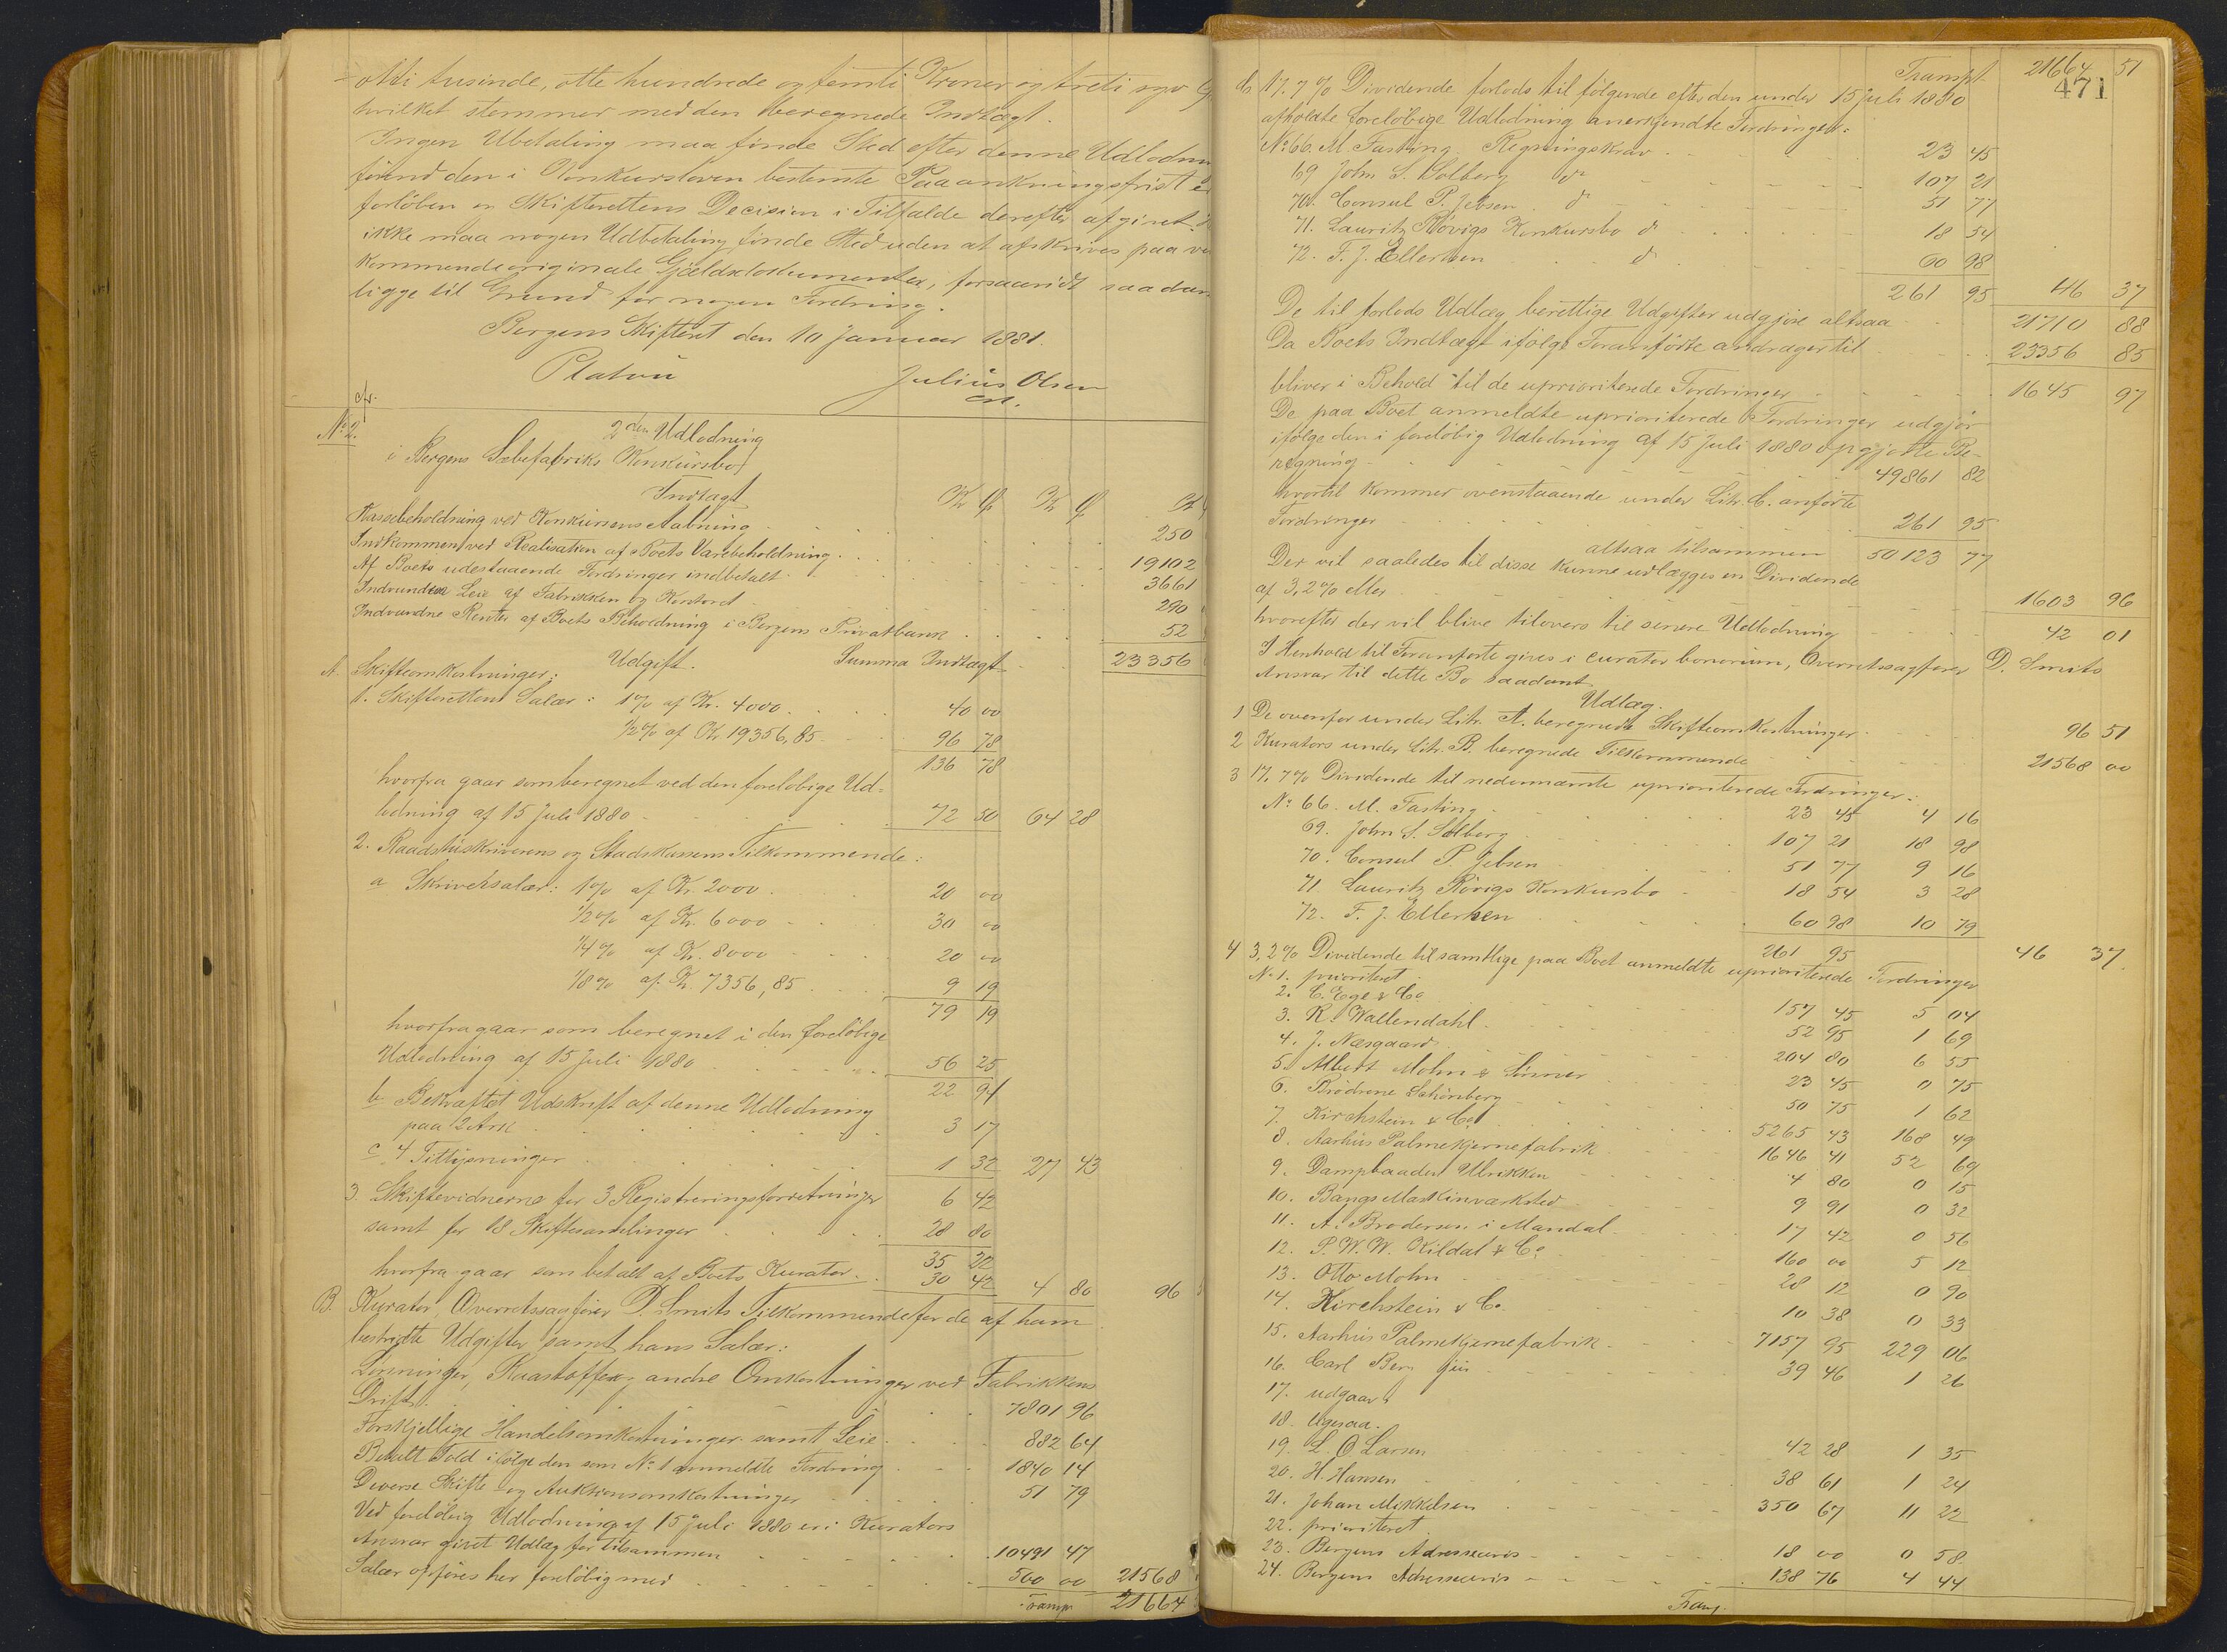 otti tusinde, otte hundrede og femti Kroner og treti syv
hvilket stemmer med den beregnede Indtægt.
Ingen Ubetaling maa finde Sted efter denne Udlodnin
förend den i Konkursloven bestemte Paaankningsfrist e
forlöben er Skifterettens Decision i Tilfælde derefter afgivet
ikke maa nogen Udbetaling finde Sted uden at afskrives paa ve
kommende originale Gjældsdokumenter, forsaavidt saadan
ligge til Grund for nogen Fordring.
Bergens Skifteret den 10 Januar 1881.
Platou Julius Olsen
cst.
cfr.
No 2. 2den Udlodning
i Bergens Sæbefabriks Konkursbo
Indtægt Kr Ø Kr Ø Kr
Kassebeholdning ved Konkursens Aabning 250
Indkommen ved Realisation af Boets Varebeholdning 19102
Af Boets udestaaende Fordringer indbetalt 3661
Indvunden Leie af Fabrikken og Kontoret 290
Indvundne Renter af Boets Beholdning i Bergens Privatbank 52
Udgift. Summa Indtægt 23356
A. Skifteomkostninger:
1. Skifterettens Salær: 1% af Kr. 4000 40 00
1/2% af Kr 19356,85 96 78
136 78
hvorfra gaar som beregnet ved den foreløbige Ud-
lodning af 15 Juli 1880 72 50 64 28
2. Raadstuskriverens og Stadskassens Tilkommende:
a Skriversalær: 1% af Kr. 2000 20 00
1/2% af Kr. 6000 30 00
1/4% af Kr. 8000 20 00
1/8% af Kr. 7356,85 9 19
79 19
hvorfra gaar som beregnet i den foreløbige
Udlodning af 15 Juli 1880 56 25
22 94
b Bekræftet Udskrift af denne Udlodning
paa 2 Ark 3 17
c 4 Tillysninger 1 32 27 43
3. Skiftevidnerne for 3 Registreringsforretninger 6 42
samt for 18 Skiftesamlinger 28 80
35 22
hvorfra gaar som betalt af Boets Kurator 30 42 4 80 96
B. Kurator, Overretssagfører D. Smits Tilkommende for de af ham
bestridte Udgifter samt hans Salær:
Lønninger, Raastoffer, andre Omkostninger ved Fabrikkens
Drift 7801 96
Forskjellige Handelsomkostninger samt Leie 882 64
Betalt Told ifölge den som No 1 anmeldte Fordring 1840 14
Diverse Skifte- og Auktionsomkostninger 51 79
Ved foreløbig Udlodning af 15 Juli 1880 er i Kurators
Ansvar givet Udlæg for tilsammen 10491 47
Salær opføres her foreløbig med 500 00 21568
Transp 21664
471
Transpt 21664 51
C. 17.7% Dividende forlods til følgende efter den under 15 Juli 1880
afholdte foreløbige Udlodning anerkjendte Fordringer:
No 66. M. Fasting Regningskrav 23 45
69 John S. Solberg do 107 21
70. Consul P. Jebsen do 51 77
71. Lauritz Rövigs Konkursbo do 18 54
72. F. J. Ellertsen do 60 98
261 95 46 37
De til forlods Udlæg berettige Udgifter udgjöre altsaa 21710 88
Da Boets Indtægt ifölge Foranførte andrager til 23356 85
bliver i Behold til de uprioriterede Fordringer 1645 97
De paa Boet anmeldte uprioriterede Fordringer udgjør
ifølge den i foreløbig Udlodning af 15 Juli 1880 opgjorte Be-
regning 49861 82
hvortil kommer ovenstaaende under Litr. C. anførte
Fordringer 261 95
altsaa tilsammen 50123 77
Der vil saaledes til disse kunne udlægges en Dividende
af 3,2% eller 1603 96
hvorefter der vil blive tilovers til senere Udlodning 42 01
I Henhold til Foranførte gives i curator bonorum, Overretssagfører D. Smits
Ansvar til dette Bo saadant
Udlæg.
1 De ovenfor under Litr. A. beregnede Skifteomkostninger 96 51
2 Kurators under Litr. B. beregnede Tilkommende 21568 00
3 17.7% Dividende til nedennævnte uprioriterede Fordringer:
No 66. M. Fasting 23 45 4 16
69. John S. Solberg 107 21 18 98
70. Consul P. Jebsen 51 77 9 16
71. Lauritz Rövigs Konkursbo 18 54 3 28
72. F. J. Ellertsen 60 98 10 79
261 95 46 37
4 3,2% Dividende til samtlige paa Boet anmeldte uprioriterede Fordringer
No 1. prioriteret
2. C. Ege & Co 157 45 5 04
3. R. Wallendahl 52 95 1 69
4. J. Næsgaard 204 80 6 55
5. Albert Mohn & Sönner 23 45 0 75
6. Brödrene Schönberg 50 75 1 62
7. Kirchstein & Co 5265 43 168 49
8. Aarhus Palmekjernefabrik 1646 41 52 69
9. Dampbaaden Ulrikken 4 80 0 15
10. Bangs Maskinværksted 9 91 0 32
11. A. Brodersen i Mandal 17 42 0 56
12. P. W. W. Kildal & Co 160 00 5 12
13. Otto Mohn 28 12 0 90
14. Kirchstein & Co 10 38 0 33
15. Aarhus Palmekjernefabrik 7157 95 229 06
16. Carl Berg jun 39 46 1 26
17. udgaar
18. ligesaa.
19. L. O. Larsen 42 28 1 35
20. H. Hansen 38 61 1 24
21. Johan Mikkelsen 350 67 11 22
22. prioriteret
23. Bergens Adresseavis 18 00 0 58
24. Bergens Adresseavis 138 76 4 44
Transp.